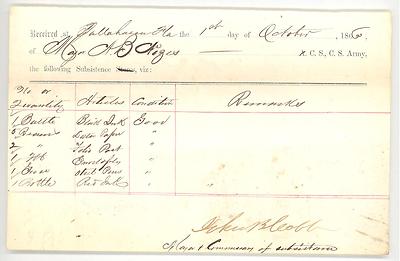 Received at Tallahassee Fla the 1st day of October, 186
of Major A B Noyes C. S., C. S. Army,
the following Subsistence Stores, viz:
No or
Quantity Articles Condition Remarks
1 Bottle Black Ink Good
Reams Letter Paper "
2/ " Note Post "
1 Envelopes "
1 Gross Steel Pens "
1 Bottle Red Ink " "
B Cobb
Major & Commissary of subsistence